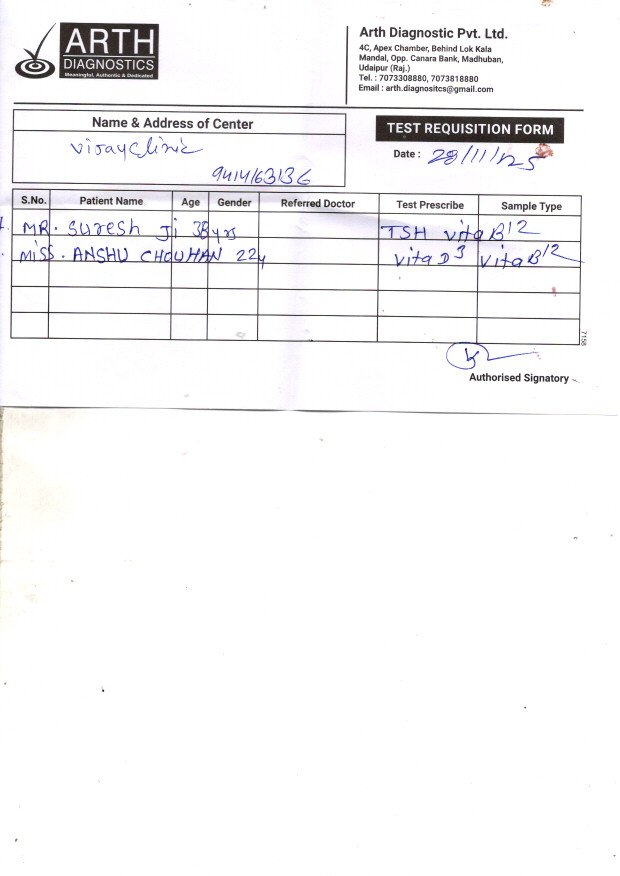 ARTH
DIAGNOSTICS
Meaningful, Authentic & Dedicated
Arth Diagnostic Pvt. Ltd.
4C, Apex Chamber, Behind Lok Kala
Mandal, Opp. Canara Bank, Madhuban,
Udaipur (Raj.)
Tel. : 7073308880, 7073818880
Email : arth.diagnositcs@gmail.com
Name & Address of Center
Vijay Clinic
9414163136
TEST REQUISITION FORM
Date : 28/11/25
S.No. Patient Name Age Gender Referred Doctor Test Prescribe Sample Type
1. MR. Suresh Ji 38 yrs TSH Vita B12
MISS. ANSHU CHOUHAN 22y Vita D3 Vita B12
7158
Authorised Signatory